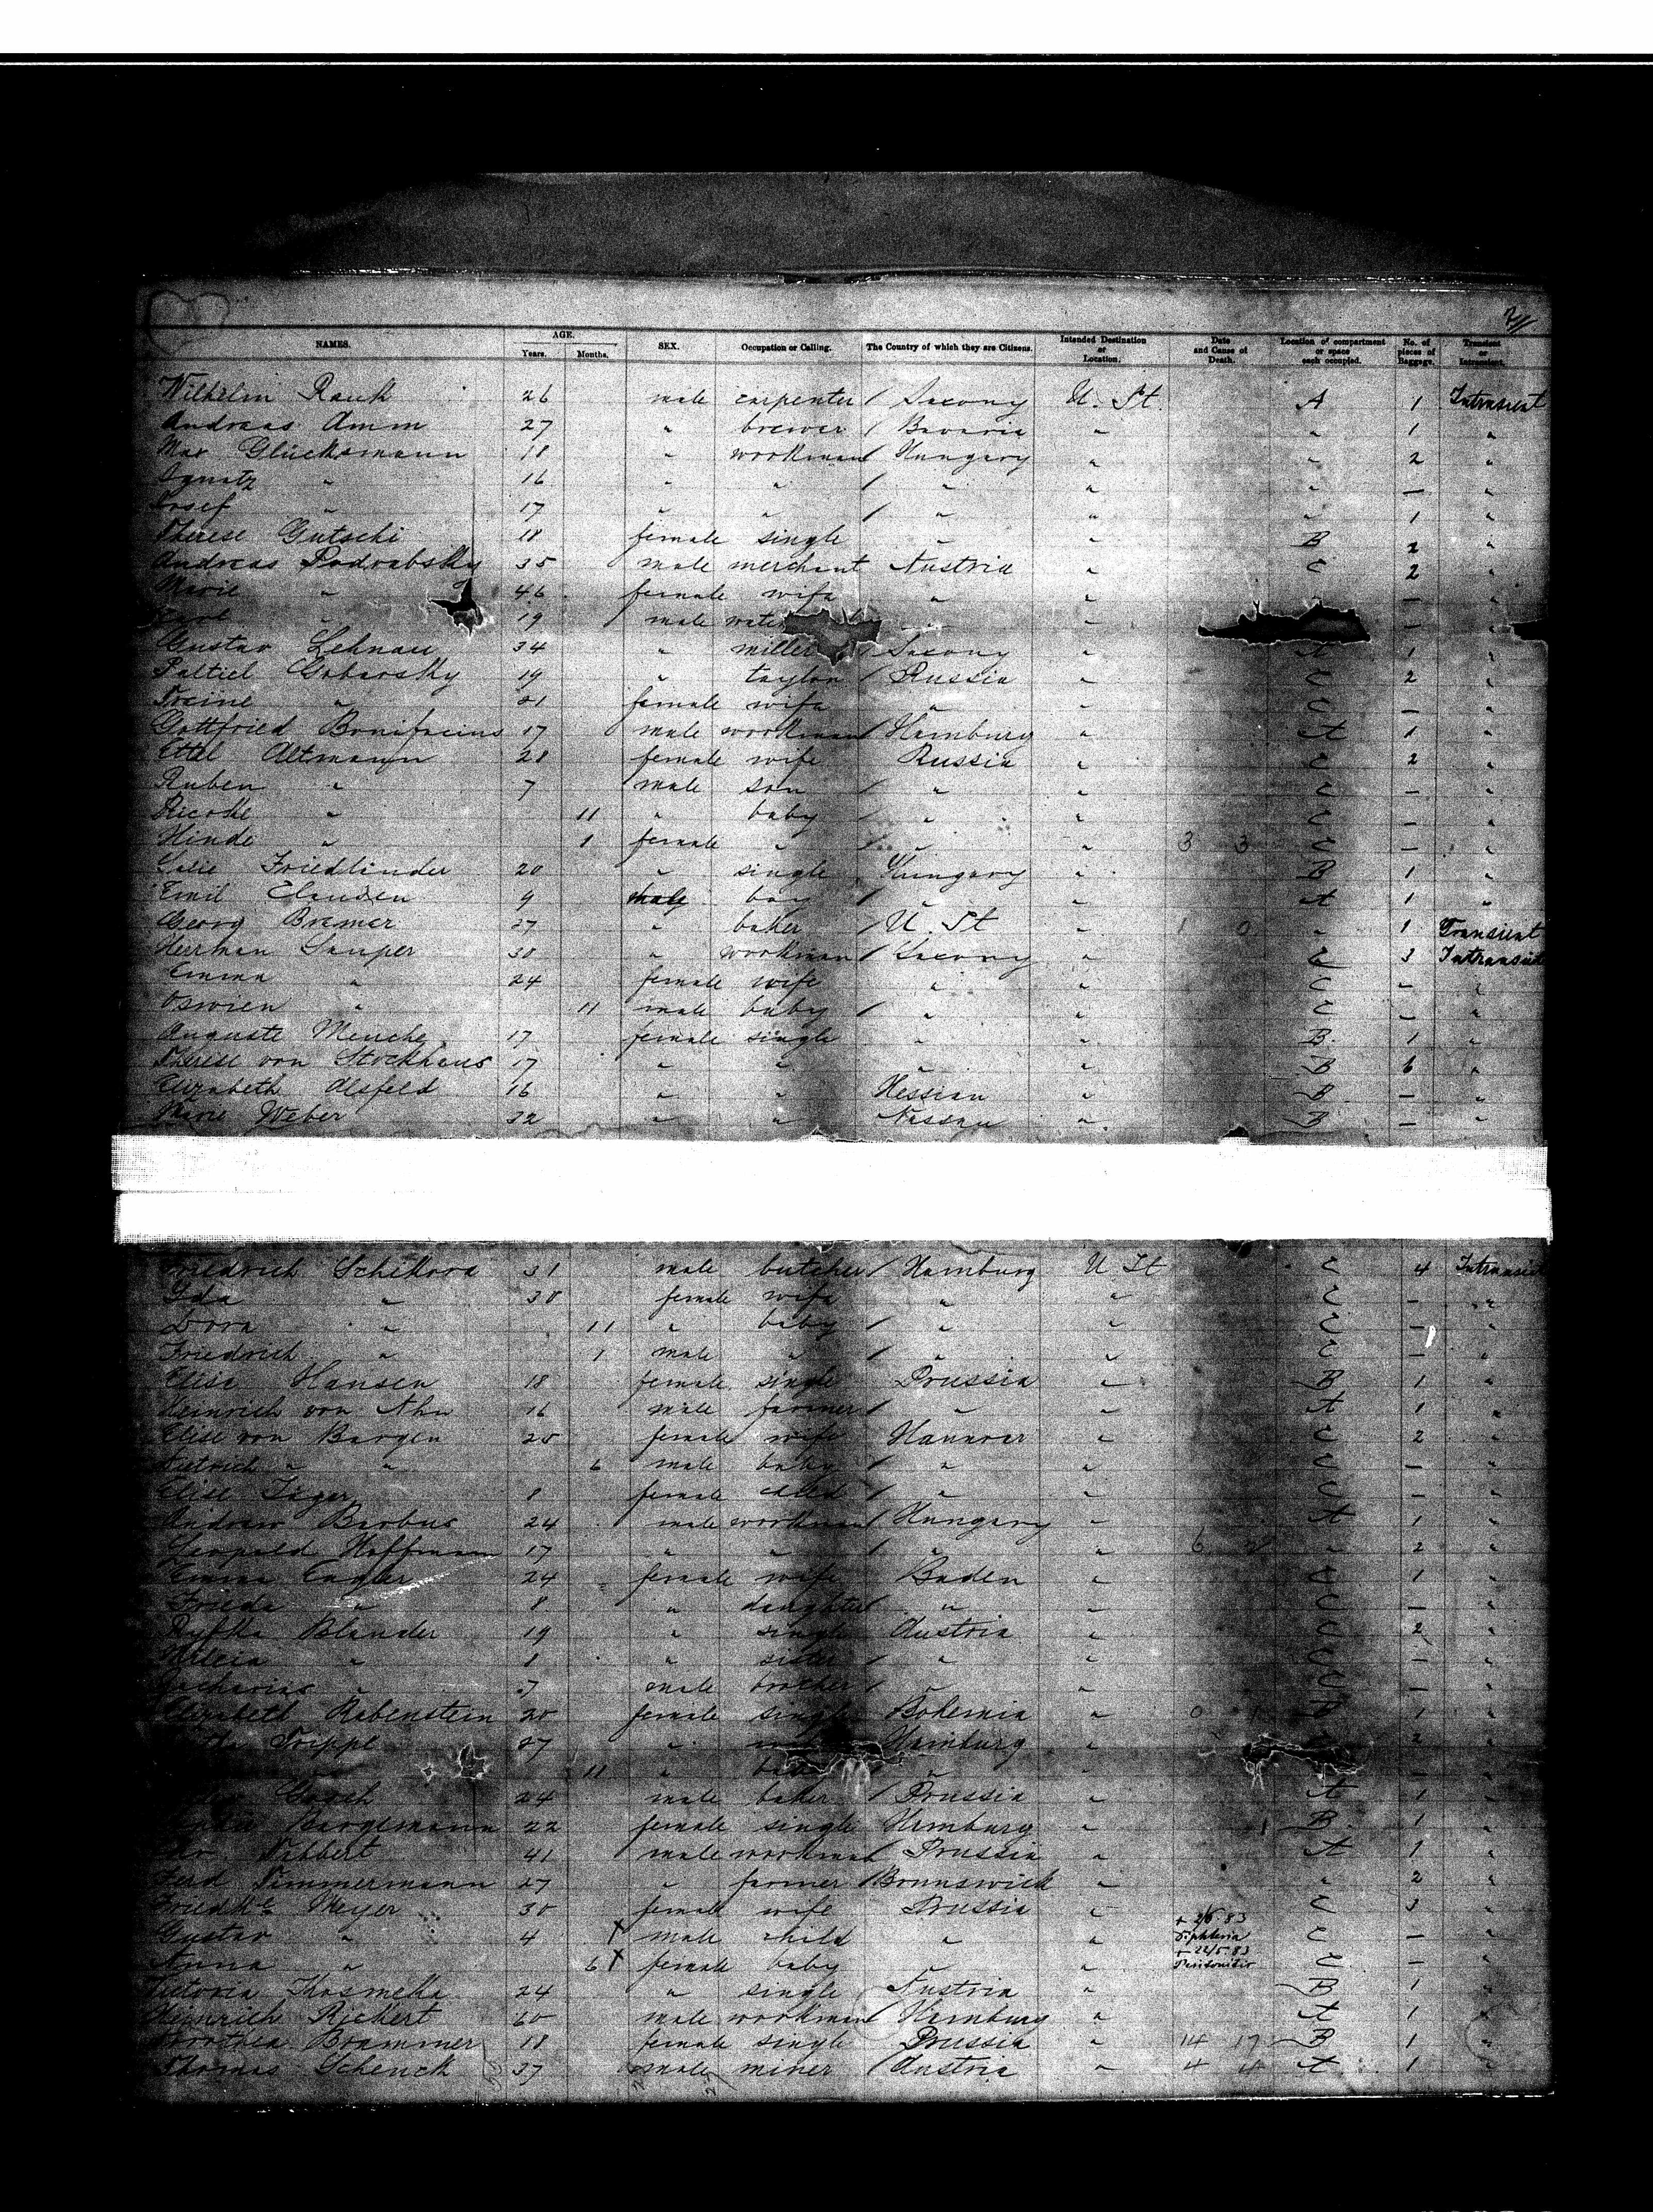 2//
NAMES. AGE. Years. Months. SEX. Occupation or Calling. The Country of which they are Citizens. Intended Destination or Location. Date and Cause of Death. Location of compartment or space each occupied. No. of pieces of Baggage. Transient or Intransient.
Wilhelm Rauh 26 male carpenter / Saxony U. St. A 1 Intransient
Andreas Amm 27 " brewer / Bavaria " " 1 "
Max Glücksmann 18 " workman / Hungary " " 2 "
Ignatz " 16 " " / " " " — "
Josef " 17 " " / " " " 1 "
Therese Gutschi 18 female single " " B 2 "
Andreas Podrabsky 35 male merchant Austria " C 2 "
Marie " 46 female wife " " — "
19 male " " —
Gustav Lehnau 34 " miller / Saxony " A 1 "
Paltiel Gobarsky 19 " taylor / Russia " C 2 "
Treine " 21 female wife " " C — "
Gottfried Bonifacius 17 male workman / Hamburg " A 1 "
Ettel Altmann 28 female wife Russia " C 2 "
Ruben " 7 male son / " " C — "
" 11 " baby / " " C — "
Hinde " 1 female " / " " 3 3 C — "
Friedländer 20 " single Hungary " B 1 "
Emil Clausen 9 male boy / " " A 1 "
Georg Bremer 27 " baker / U. St " 1 0 " 1 Transient
Herrman Sauper 30 " workman / Saxony " C 3 Intransient
Emma " 24 female wife " " C — "
" 11 male baby / " " C — "
Auguste Menche 17 female single " " B. 1 "
Therese von Stockhaus 17 " " " " B 6 "
Elizabeth Alsfeld 16 " " Hessian " B — "
Marie Weber 32 " " Nassau " B — "
Friedrich Schikora 31 male butcher / Hamburg U St C 4 Intransient
Ida " 30 female wife " " C — "
Dora " 11 " baby / " " C — "
Friedrich " 1 male " / " " C — "
Elise Hansen 18 female single Prussia " B 1 "
Heinrich von Ahn 16 male farmer / " " A 1 "
Elise von Bargen 25 female wife Hannover " C 2 "
Dietrich " " 6 male baby / " " C — "
Elise Jäger 8 female child / " " C — "
Andraw Barbus 24 male workman / Hungary " A 1 "
Leopold Hoffmann 17 " " / " " 6 " 2 "
Emma Engler 24 female wife Baden " C 1 "
Frieda " 8 " daughter / " " C — "
Ryfka Blander 19 " single Austria " C 2 "
" 8 " sister / " " C — "
Zacharias " 7 male brother / " " C — "
Elizabeth Rabenstein 20 female single Bohemia " 0 1 B 1 "
Trippe 27 " Hamburg " C 2 "
11 " baby / " " — "
24 male baker / Prussia " A 1 "
Bargemann 22 female single Hamburg " 1 B. 1 "
Nabbert 41 male workman / Prussia " A 1 "
Ferd Timmermann 27 " farmer / Brunswick " " 2 "
Friedke Meyer 30 female wife Prussia " C 3 "
Gustav " 4 X male child " " + 2/5 83 Diphteria C — "
Anna " 6 X female baby " " + 22/5 83 Peritonitis C — "
Victoria Kosmelka 24 " single Austria " B 1 "
Heinrich Rickert 60 male workman / Hamburg " A 1 "
Dorothea Brammer 18 female single Prussia " 14 17 B 1 "
Thomas Schenck 37 male miner / Austria " 4 4 A 1 "